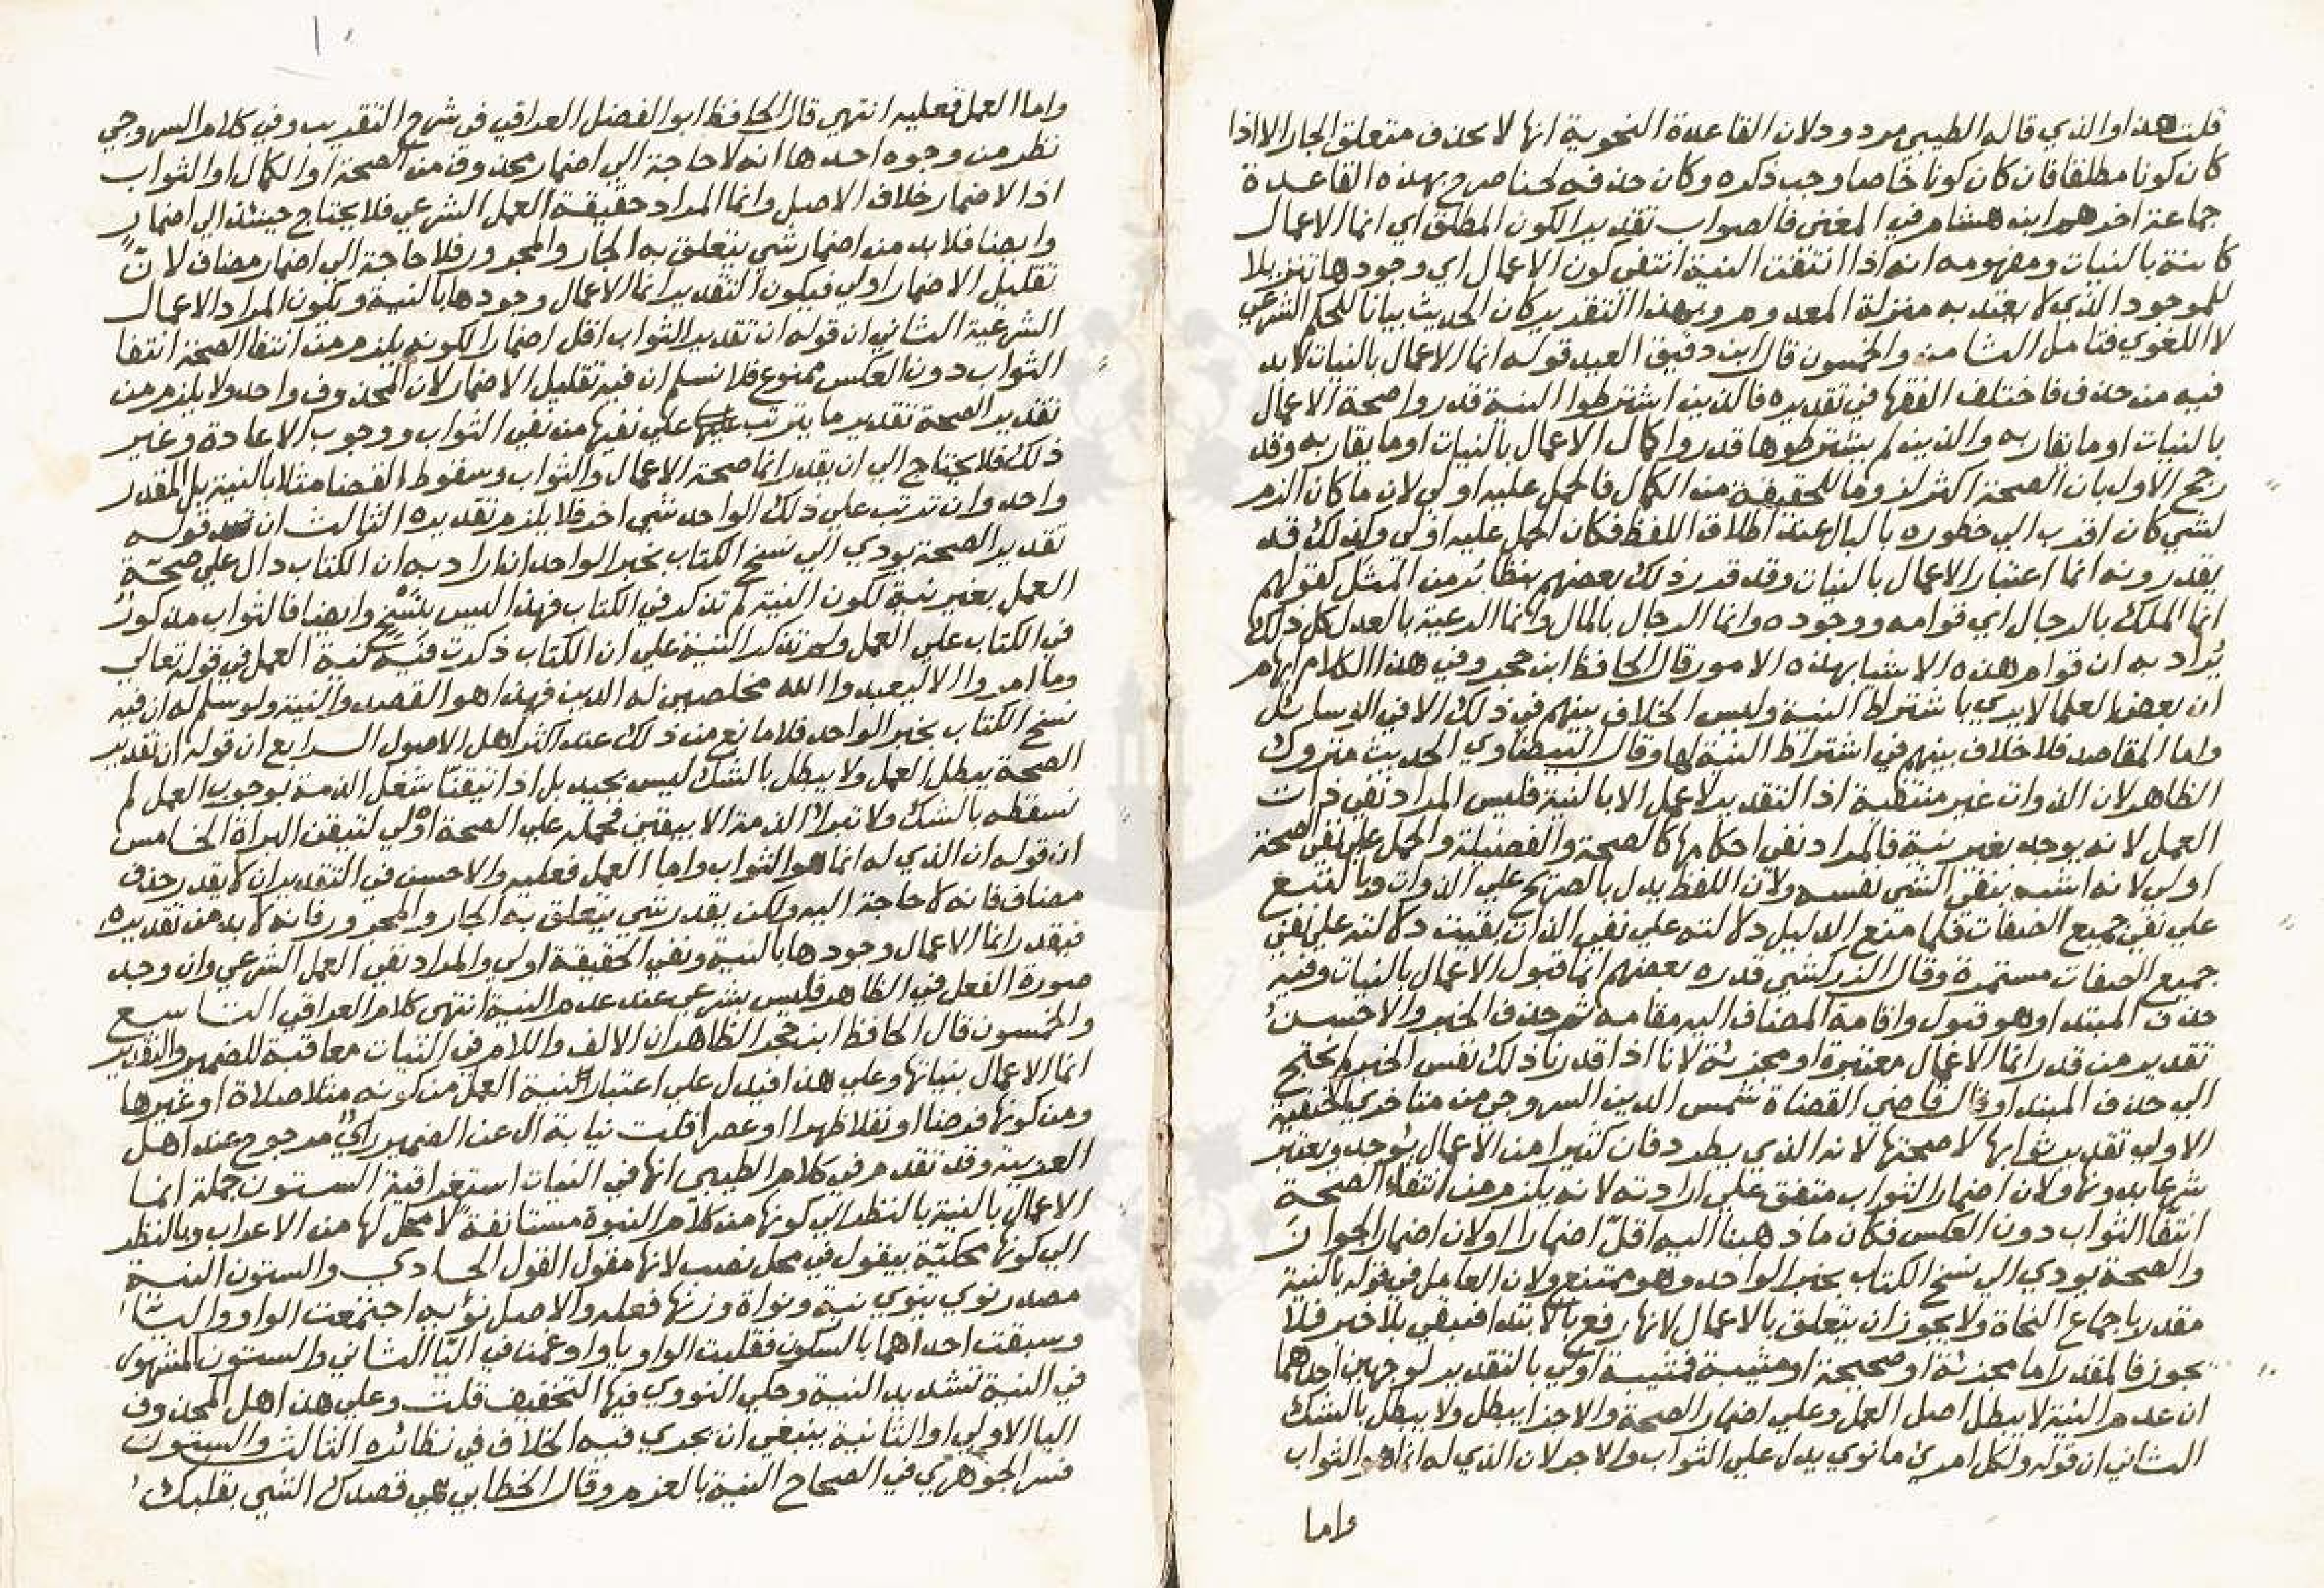 قلت هذا والذي قاله الطيبي مردود لان القاعدة النحوية انها لا يحذف متعلق الجار الا اذا
كان كونا مطلقا فان كان كونا خاصا وجب ذكره وكان حذفه لحنا صرح بهذه القاعدة
جماعة اخرهم ابن هشام في المغني فالصواب تقدير الكون المطلق اي انما الاعمال
كائنة بالنيات ومفهومه انه اذا انتفت النية انتفي كون الاعمال اي وجودها تنزيلا
للموجود الذي لا يعتد به منزلة المعدوم وبهذا التقدير كان الحديث بيانا للحكم الشرعي
لا اللغوي فتامل الثامن والخمسون قال ابن دقيق العيد قوله انما الاعمال بالنيات لابد
فيه من حذف فاختلف الفقها في تقديره فالذين اشترطوا النية قدروا صحة الاعمال
بالنيات او ما يقاربه والذين لم يشترطوها قدروا كمال الاعمال بالنيات او ما يقاربه وقد
رجح الاول بان الصحة اكثر لزوما للحقيقة من الكمال فالحمل عليه اولي لان ما كان الزم
لشي كان اقرب الي خطوره بالبال عند اطلاق اللفظ فكان الحمل عليه اولي وكذلك قد
يقدرونه انما اعتبار الاعمال بالنيات وقد قرر ذلك بعضهم بنظائر من المثل كقولهم
انما الملك بالرجال اي قوامه ووجوده وانما الرجال بالمال وانما الرعية بالعدل كل ذلك
يراد به ان قوام هذه الاشيا بهذه الامور قال الحافظ ابن حجر وفي هذا الكلام ايهام
ان بعض العلما لا يري باشتراط النية وليس الخلاف بينهم في ذلك الا في الوسائل
واما المقاصد فلا خلاف بينهم في اشتراط النية لها وقال البيضاوي الحديث متروك
الظاهر لان الذوات غير منتفية اذ التقدير لا عمل الا بالنية فليس المراد نفي ذات
العمل لانه يوجد بغير نية فالمراد نفي احكامها كالصحة والفضيلة والحمل علي نفي الصحة
اولي لانه اشبه بنفي الشي نفسه ولان اللفظ يدل بالصريح علي الذوات وبالتبع
علي نفي جميع الصفات فلما منع الدليل دلالته علي نفي الذات بقيت دلالته علي نفي
جميع الصفات مستمرة وقال الزركشي قدره بعضهم انما قبول الاعمال بالنيات وفيه
حذف المبتدا وهو قبول واقامة المضاف اليه مقامه ثم حذف الخبر والاحسن
تقدير من قدر انما الاعمال معتبرة او مجزئة لانا اذا قدرنا ذلك نفس الخبر لم نحتج
الي حذف المبتدا وقال قاضي القضاة شمس الدين السروجي من متاخري الحنفية
الاولي تقدير ثوابها لا صحتها لانه الذي يطرد فان كثيرا من الاعمال يوجد ويعتبر
شرعا بدونها ولان اضمار الثواب متفق علي ارادته لانه يلزم من انتفاء الصحة
انتفا الثواب دون العكس فكان ما ذهبنا اليه اقل اضمارا ولان اضمار الجواز
والصحة يودي الي نسخ الكتاب بخبر الواحد وهو ممتنع ولان العامل في قوله بالنية
مقدر باجماع النحاة ولا يجوز ان يتعلق بالاعمال لانها رفع بالابتدا فيبقي بلا خبر فلا
يجوز فالمقدر اما مجزئة او صحيحة او مثيبة فمثيبة اولي بالتقدير لوجهين احدهما
ان عدم النية لا يبطل اصل العمل وعلي اضمار الصحة والاجزا يبطل ولا يبطل بالشك
الثاني ان قوله ولكل امرئ ما نوي يدل علي الثواب والاجر لان الذي له انما هو الثواب
واما
واما العمل فعليه انتهي قال الحافظ ابو الفضل العراقي في شرح التقريب وفي كلام السروجي
نظر من وجوه احدها انه لا حاجة الي اضمار محذوف من الصحة او الكمال او الثواب
اذ الاضمار خلاف الاصل وانما المراد حقيقة العمل الشرعي فلا يحتاج حينئذ الي اضمار
وايضا فلا بد من اضمار شي يتعلق به الجار والمجرور فلا حاجة الي اضمار مضاف لان
تقليل الاضمار اولي فيكون التقدير انما الاعمال وجودها بالنية ويكون المراد الاعمال
الشرعية الثاني ان قوله ان تقدير الثواب اقل اضمارا لكونه يلزم من انتفا الصحة انتفا
الثواب دون العكس ممنوع فلا نسلم ان فيه تقليل الاضمار لان المحذوف واحد ولا يلزم من
تقدير الصحة تقدير ما يترتب علي نفيها من نفي الثواب ووجوب الاعادة وغير
ذلك فلا يحتاج الي ان يقدر انما صحة الاعمال والثواب وسقوط القضا مثلا بالنية بل المقدر
واحد وان ترتب علي ذلك الواحد شي اخر فلا يلزم تقديره الثالث ان قوله
تقدير الصحة يودي الي نسخ الكتاب بخبر الواحد ان اراد به ان الكتاب دال علي صحة
العمل بغير نية لكون النية لم تذكر في الكتاب فهذا ليس بنسخ وايضا فالثواب مذكور
في الكتاب علي العمل ولم تذكر النية علي ان الكتاب ذكرت فيه نية العمل في قوله تعالي
وما امروا الا ليعبدوا الله مخلصين له الدين فهذا هو القصد والنية ولو سلم له ان فيه
نسخ الكتاب بخبر الواحد فلا مانع من ذلك عند اكثر اهل الاصول الرابع ان قوله ان تقدير
الصحة يبطل العمل ولا يبطل بالشك ليس بجيد بل اذا تيقنا شغل الذمة بوجوب العمل لم
نسقطه بالشك ولا تبرا الذمة الا بيقين فحمله علي الصحة اولي لتيقن البراة الخامس
ان قوله ان الذي له انما هو الثواب واما العمل فعليه والاحسن في التقدير ان لا يقدر حذف
مضاف فانه لا حاجة اليه ولكن يقدر شي يتعلق به الجار والمجرور فانه لا بد من تقديره
فيقدر انما الاعمال وجودها بالنية ونفي الحقيقة اولي والمراد نفي العمل الشرعي وان وجد
صورة الفعل في الظاهر فليس بشرعي عند عدم النية انتهي كلام العراقي التاسع
والخمسون قال الحافظ ابن حجر الظاهر ان الالف واللام في النيات معاقبة للضمير والتقدير
انما الاعمال بنياتها وعلي هذا فيدل علي اعتبار نية العمل من كونه مثلا صلاة او غيرها
ومن كونها فرضا او نفلا ظهرا او عصرا قلت نيابة ال عن الضمير راي مرجوح عند اهل
العربية وقد تقدم في كلام الطيبي انها في النيات استغراقية الستون جملة انما
الاعمال بالنية بالنظر الي كونها من كلام النبوة مستانفة لا محل لها من الاعراب وبالنظر
الي كونها محكية بيقول في محل نصب لانها مقول القول الحادي والستون النية
مصدر نوي ينوي نية ونواة وزنها فعلة والاصل نوية اجتمعت الواو واليا
وسبقت احداهما بالسكون فقلبت الواو يا وادغمت في اليا الثاني والستون المشهور
في النية تشديد النية وحكي النووي فيها التخفيف قلت وعلي هذا اهل المحذوف
اليا الاولي او الثانية ينبغي ان يجري فيه الخلاف في نظائره الثالث والستون
فسر الجوهري في الصحاح النية بالعزم وقال الخطابي هي قصدك الشي بقلبك